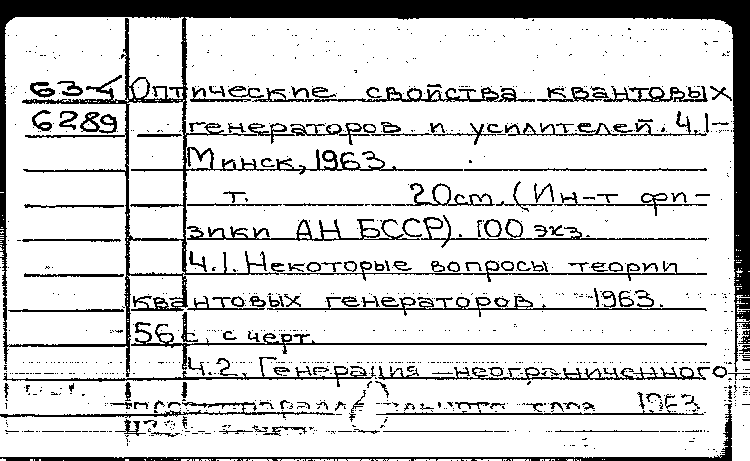 63-4 Оптические свойства квантовых
6289 генераторов и усилителей. Ч.1-
Минск, 1963.
т. 20см. (Ин-т фи-
зики АН БССР). 100 экз.
Ч.1. Некоторые вопросы теории
квантовых генераторов. 1963.
56 с. с черт.
Ч.2. Генерация неограниченного
слоя 1963